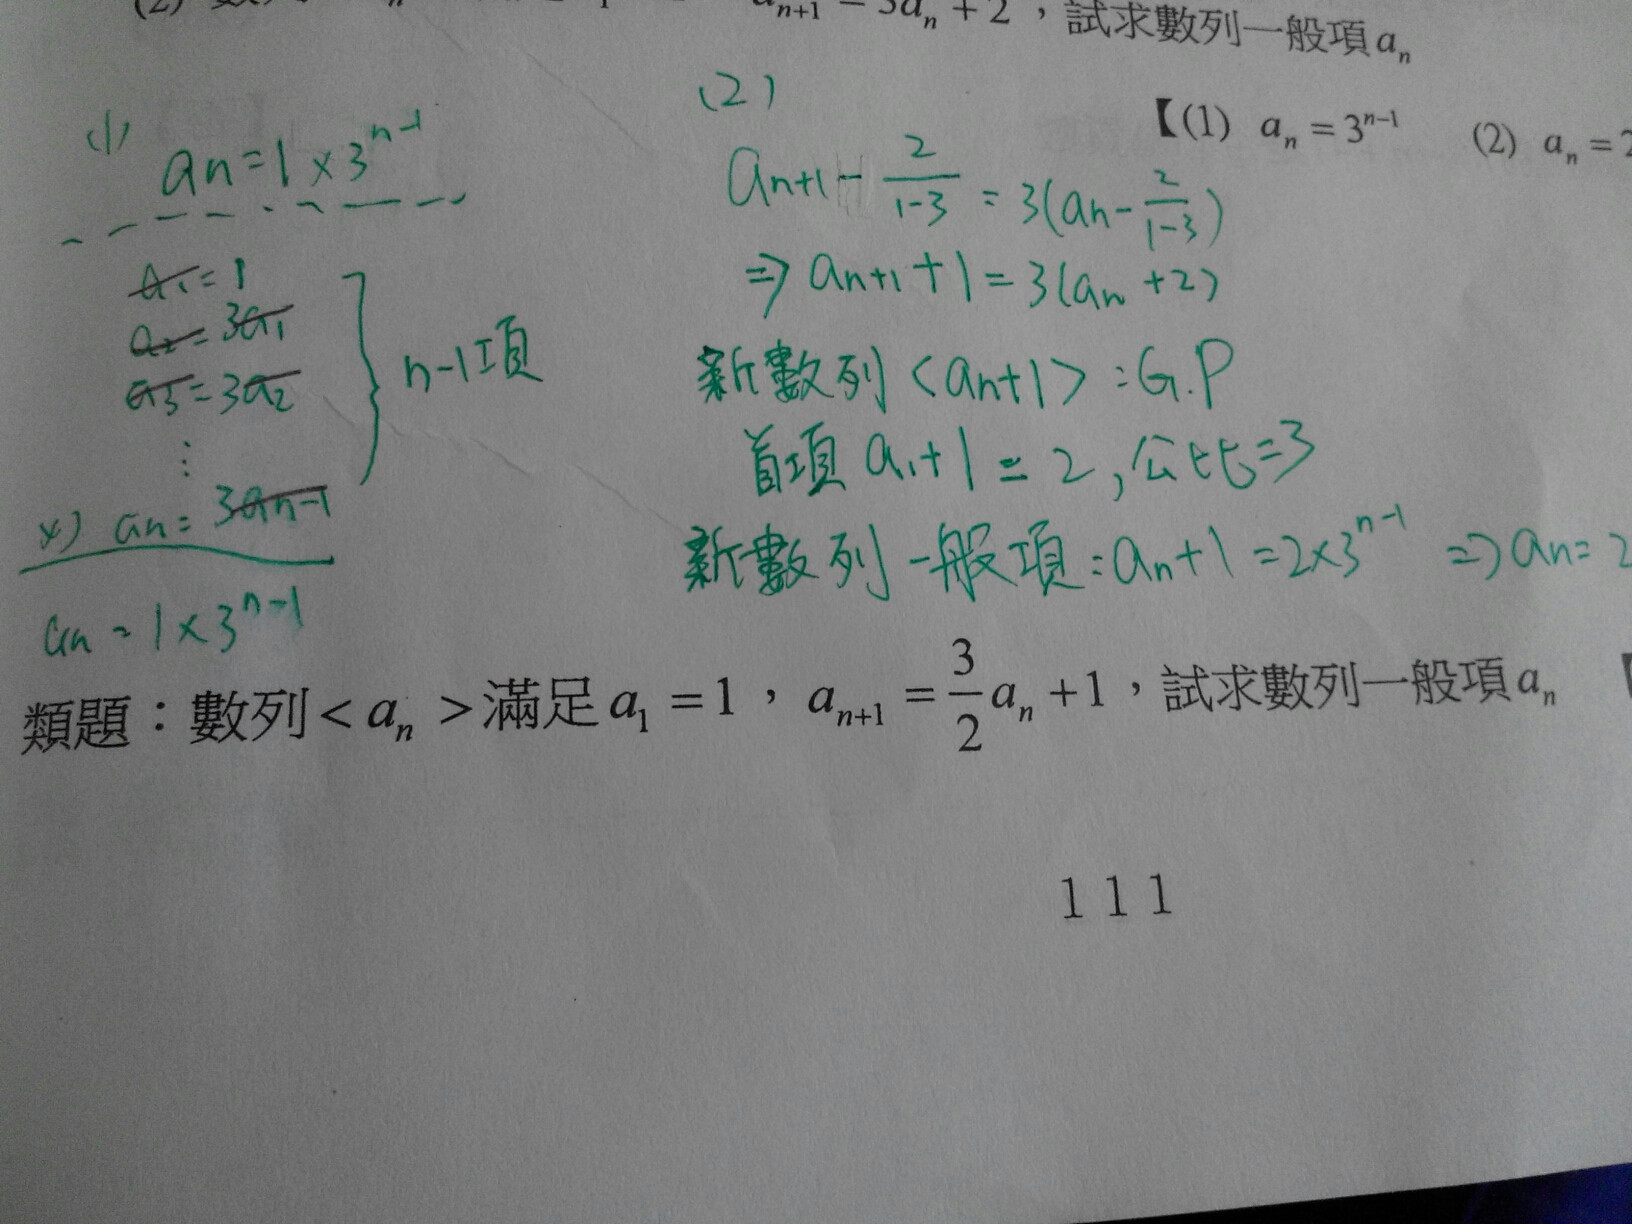 (2) 數列 a_{n+1} = 3a_n + 2，試求數列一般項 a_n
【(1) a_n = 3^{n-1} (2) a_n = 2
(1) an = 1 × 3^{n-1}
a1 = 1
a2 = 3a1
a3 = 3a2
⋮
×) an = 3an-1
n-1項
an = 1 × 3^{n-1}
(2)
an+1 - \frac{2}{1-3} = 3(an - \frac{2}{1-3})
⇒ an+1 + 1 = 3(an + 2)
新數列 <an+1> : G.P
首項 a1+1 = 2, 公比=3
新數列一般項：an+1 = 2×3^{n-1} ⇒ an = 2
類題：數列 < a_n > 滿足 a_1 = 1， a_{n+1} = \frac{3}{2}a_n + 1，試求數列一般項 a_n 【
111